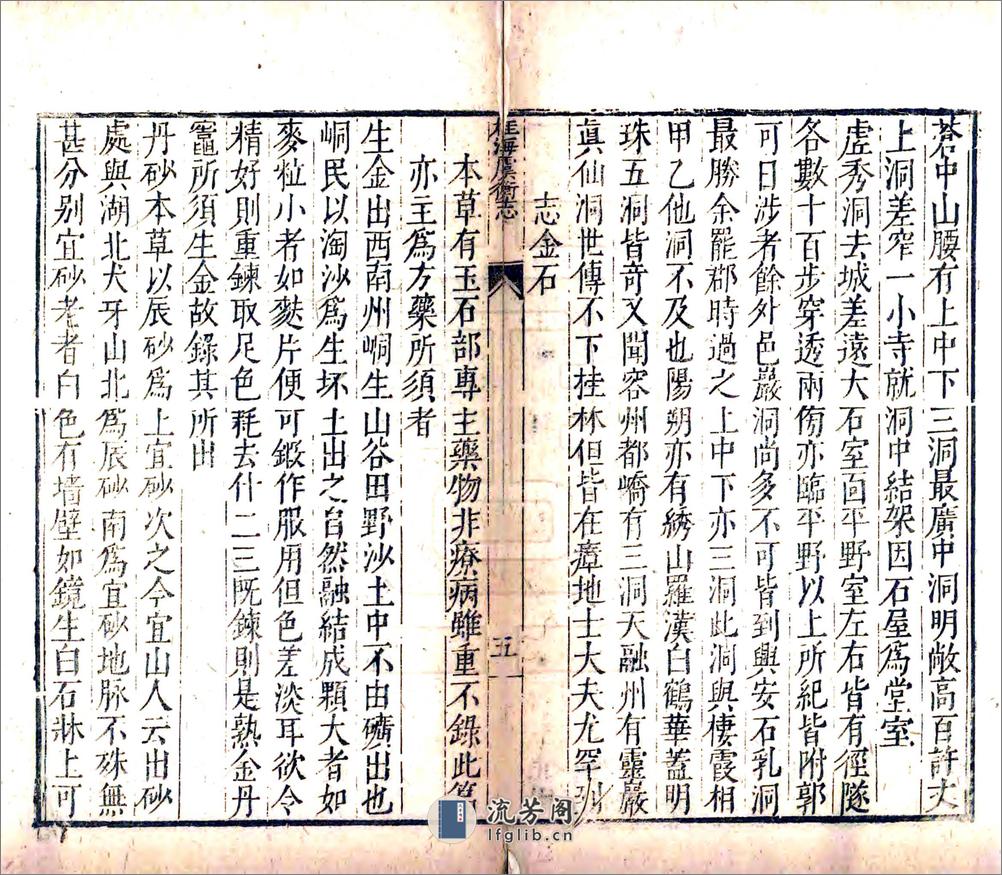 蒼中山腰有上中下三洞最廣中洞明敞高百許丈
上洞差窄一小寺就洞中結架因石屋爲堂室
虛秀洞去城差遠大石室面平野室左右皆有徑隧
各數十百步穿透兩傍亦臨平野以上所紀皆附郭
可日涉者餘外邑巖洞尚多不可皆到興安石乳洞
最勝余罷郡時過之上中下亦三洞此洞與棲霞相
甲乙他洞不及也陽朔亦有綉山羅漢白鶴華蓋明
珠五洞皆奇又聞容州都嶠有三洞天融州有靈巖
眞仙洞世傳不下桂林但皆在瘴地士大夫尤罕到
志金石
桂海虞衡志
五
本草有玉石部專主藥物非療病雖重不錄此篇
亦主爲方藥所須者
生金出西南州峒生山谷田野沙土中不由礦出也
峒民以淘沙爲生坏土出之自然融結成顆大者如
麥粒小者如麩片便可鍛作服用但色差淡耳欲令
精好則重鍊取足色耗去什二三既鍊則是熟金丹
竈所須生金故錄其所出
丹砂本草以辰砂爲上宜砂次之今宜山人云出砂
處與湖北犬牙山北爲辰砂南爲宜砂地脉不殊無
甚分别宜砂老者白色有墻壁如鏡生白石牀上可
流芳阁
lfglib.cn